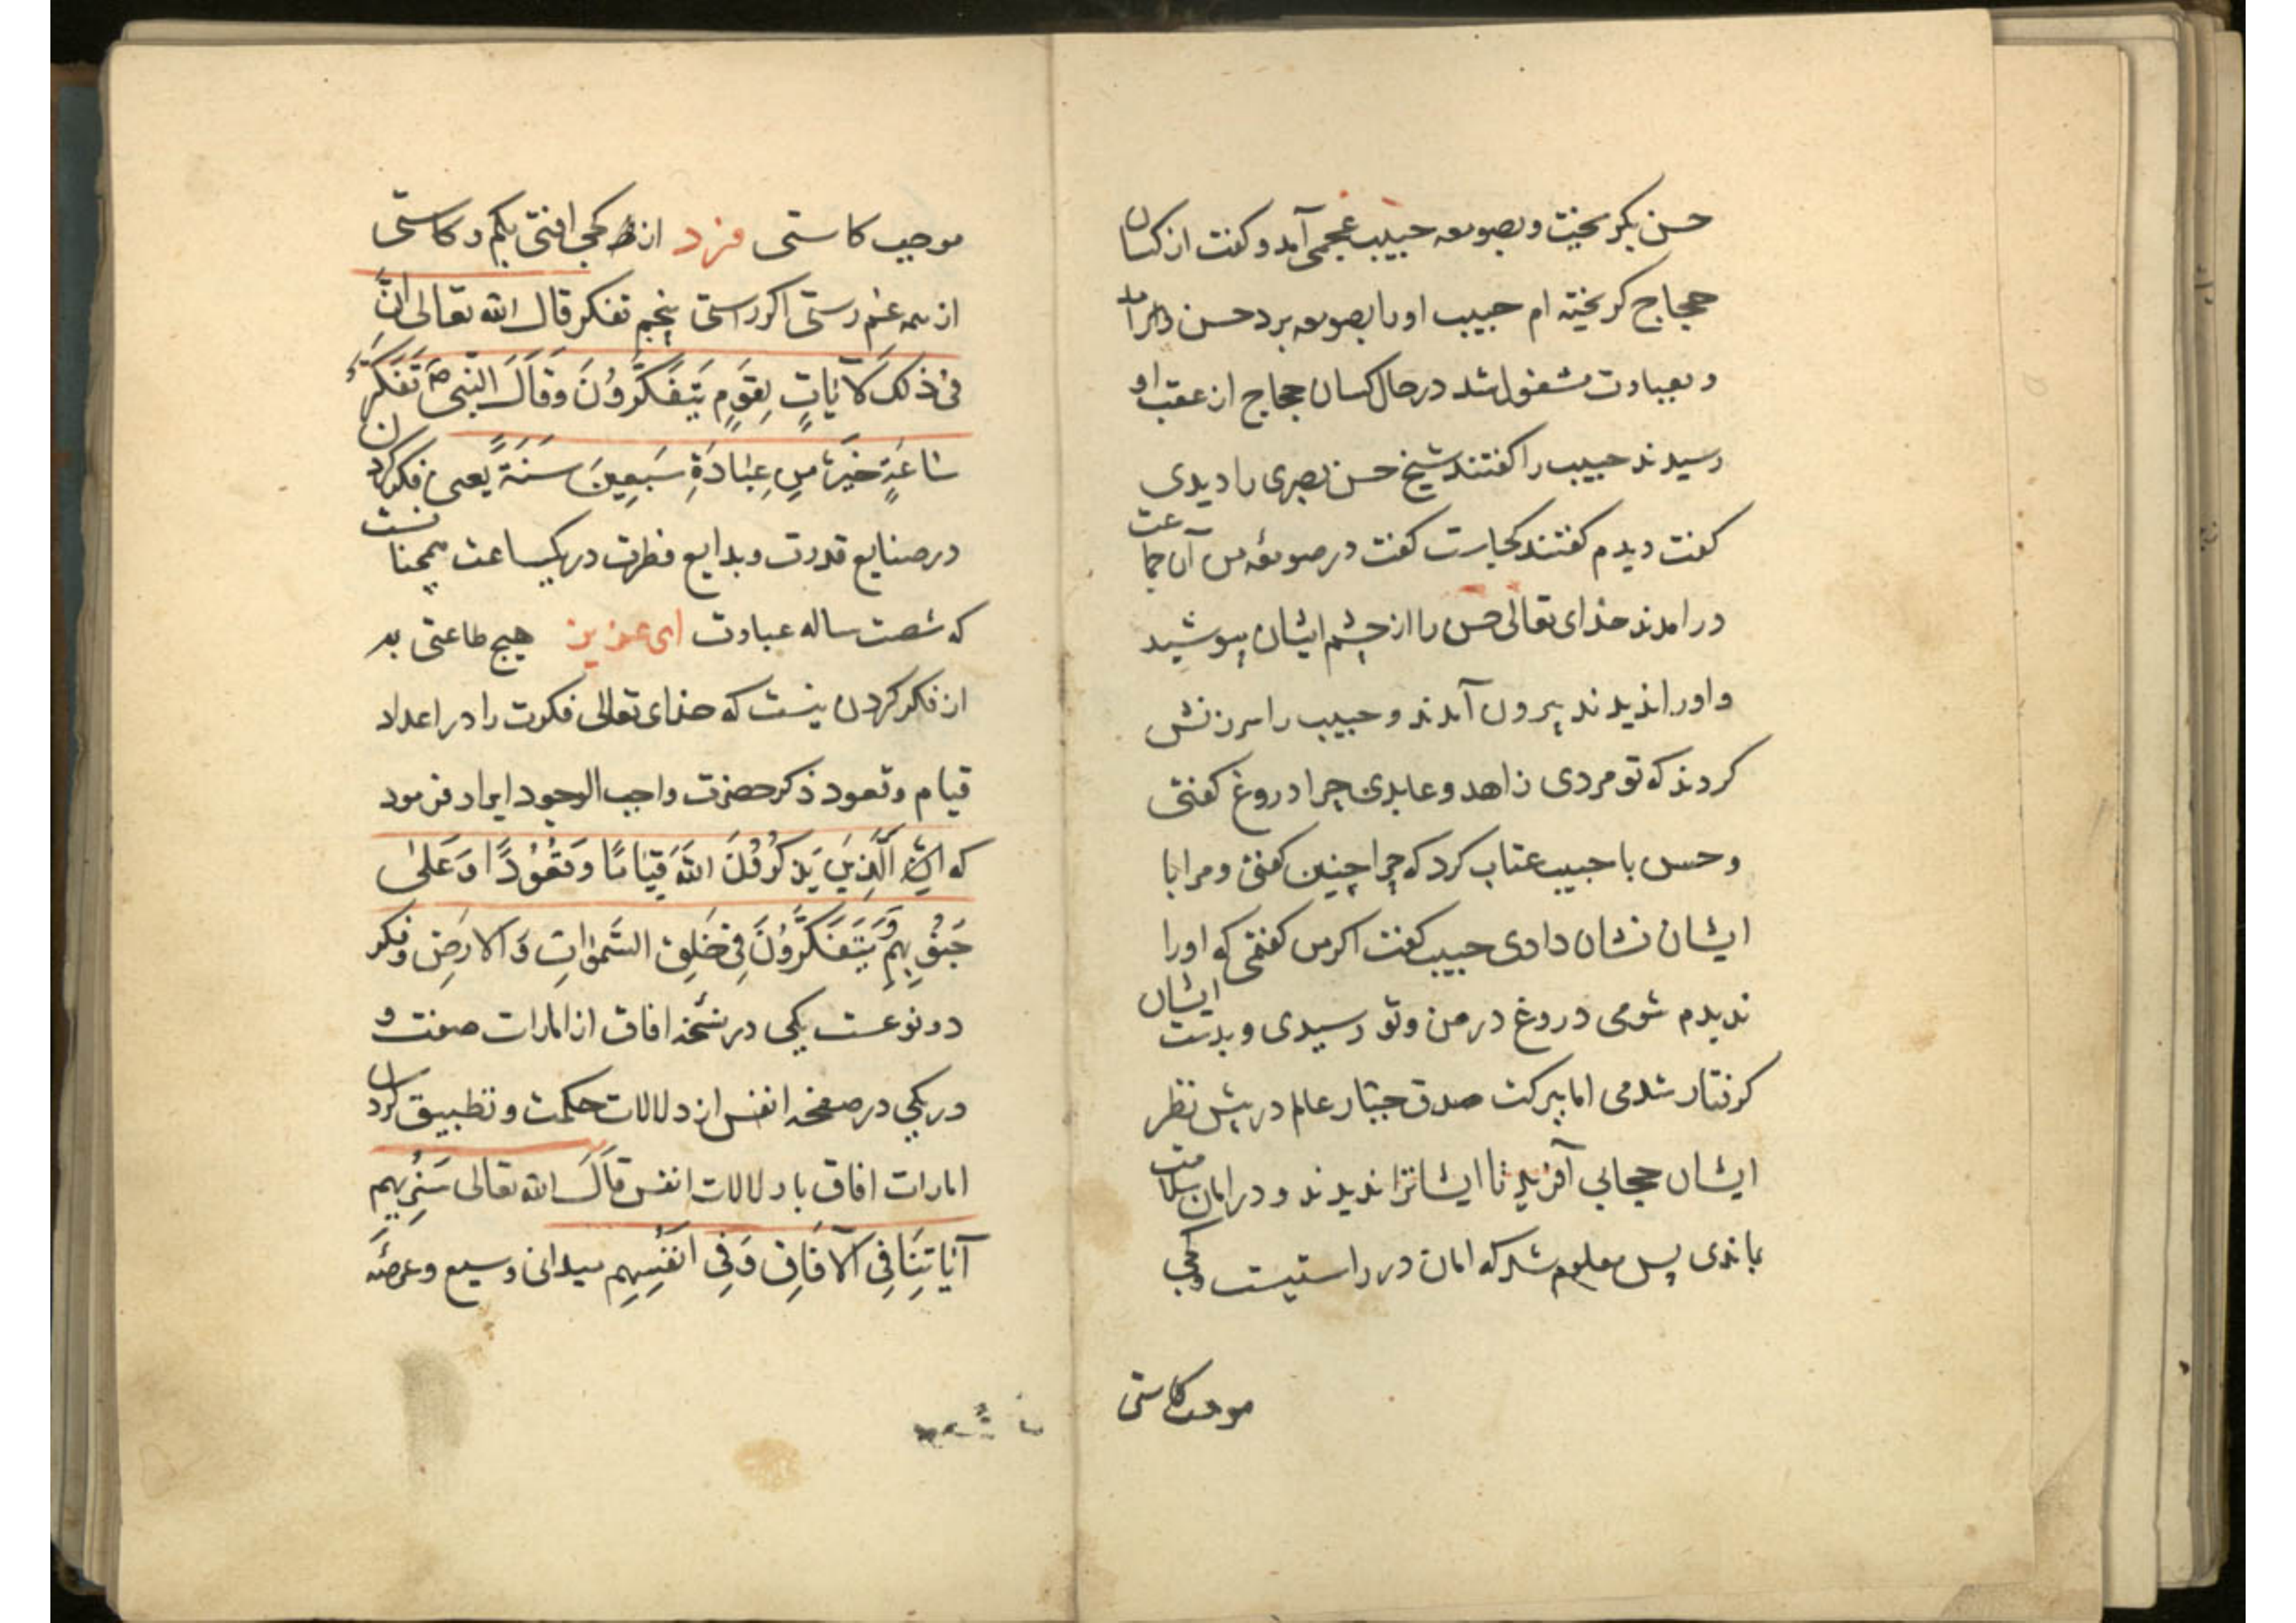 حسن بگریخت و بصومعه حبیب عجمی آمد و گفت از کسان
حجاج گریخته ام حبیب او را بصومعه برد حسن درآمد
و بعبادت مشغول شد در حال کسان حجاج از عقب او
رسیدند حبیب را گفتند شیخ حسن بصری را دیدی
گفت دیدم گفتند کجاست گفت در صومعهٔ من آن جماعت
درامدند خدای تعالی حسن را از چشم ایشان بپوشید
و او را ندیدند بیرون آمدند و حبیب را سرزنش
کردند که تو مردی زاهد و عابدی چرا دروغ گفتی
و حسن با حبیب عتاب کرد که چرا چنین گفتی و مرا با
ایشان نشان دادی حبیب گفت اکر من گفتمی که او را
ندیدم شومی دروغ در من و تو رسیدی و بدست ایشان
گرفتار شدمی اما ببرکت صدق جبّار عالم در پیش نظر
ایشان حجابی آفرید تا ایشان ترا ندیدند و در امان سلامت
بماندی پس معلوم شد که امان در راستیست و کجی
موجب کاستی
موجب کاستی فرد از کجی افتی بکم و کاستی
از همه غم رستی اکر راستی پنجم تفکر قال الله تعالی اِنَّ
فی ذلک لَآیَاتٍ لِقَوْمٍ یَتَفَکَّرُونَ وَقَالَ النّبی ص تَفَکُّرُ
سَاعَةٍ خَیْرٌ مِن عِبَادَةِ سَبعِینَ سَنَةً یعنی فکر کردن
در صنایع قدرت و بدایع فطرت در یکساعت همچنانست
که شصت ساله عبادت ای عزیز هیچ طاعتی به
از فکر کردن نیست که خدای تعالی فکرت را در اعداد
قیام و قعود ذکر حضرت واجب الوجود ایراد فرمود
که الَّذِینَ یَذکُرُونَ اللهَ قِیَامًا وَقُعُودًا وَعَلی
جُنُوبِهِم وَیَتَفَکَّرُونَ فِی خَلقِ السَّمٰوَاتِ وَالارضِ و فکر
دو نوعست یکی در نسخه افاق از امارات صنعت و
دریکی در صفحه انفس از دلالات حکمت و تطبیق کردن
امارات افاق با دلالات انفس قَالَ الله تعالی سَنُرِیهِم
آیَاتِنَا فِی الآفَاقِ وَفِی اَنفُسِهِم میدانی وسیع و عرصهٔ